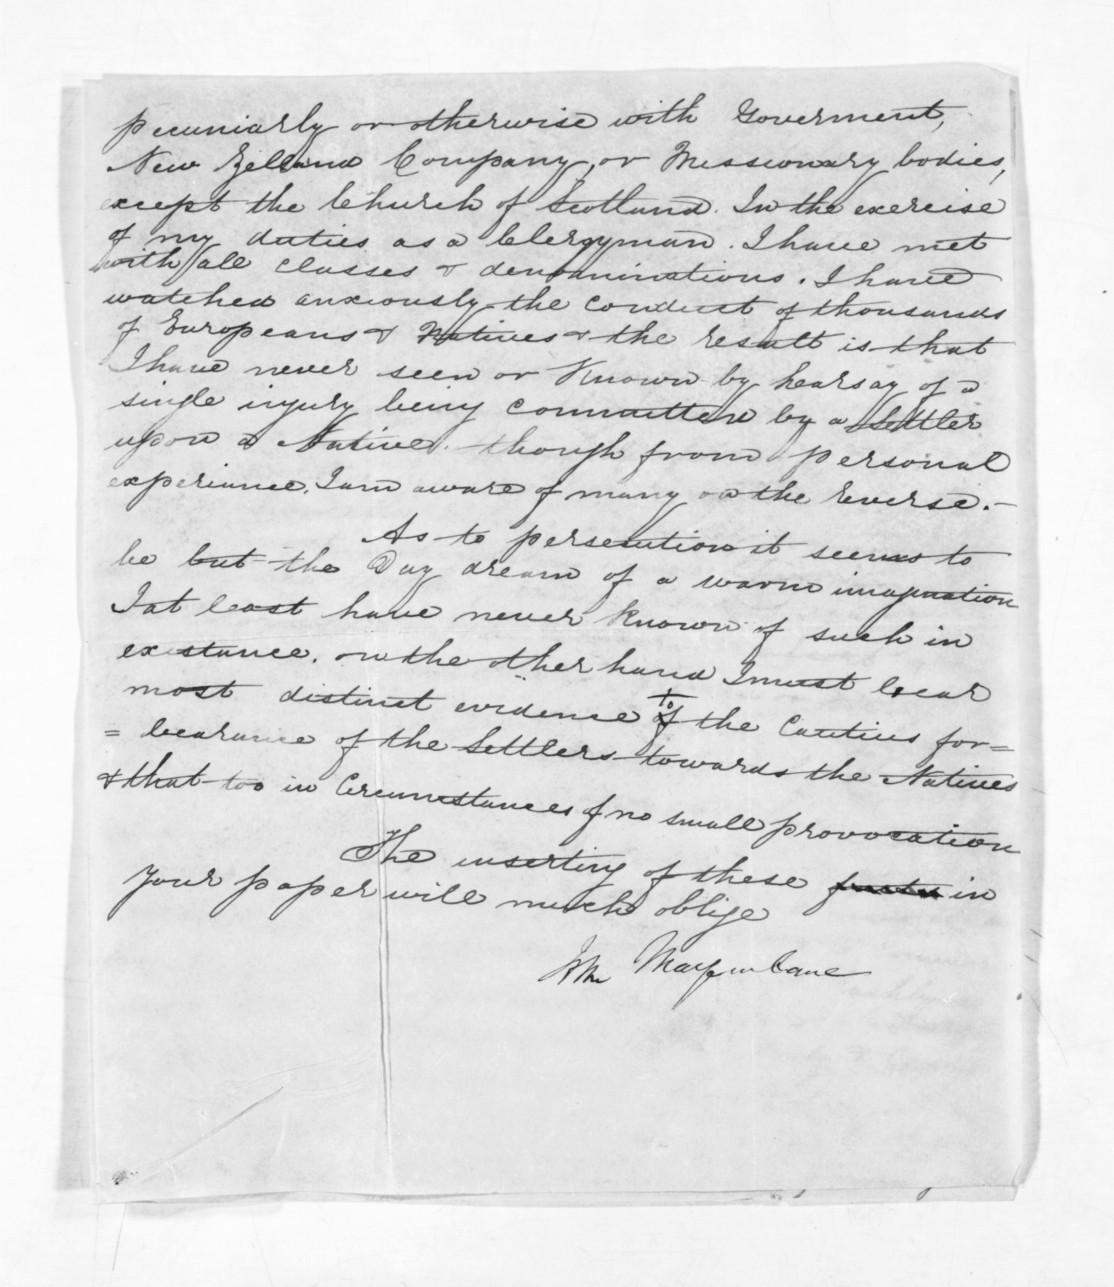 pecuniarly or otherwise with Goverment,
New Zelland Company, or Missionary bodies,
except the Church of Scotland. In the exercise
of my duties as a Clergyman. I have met
with all classes & denominations. I have
watched anxiously the conduct of thousands
of Europeans & Natives & the result is that
I have never seen or Known by hearsay of a
single injury being committed by a Settler
upon a Native. though from personal
experiance. I am aware of many on the Reverse. -
As to persecution it seems to
be but the Day dream of a warm imagination
I at least have never known of such in
existance. on the other hand I must bear
most distinct evidence of the Cautius for=
to
= bearance of the Settlers towards the Natives
& that too in Circumstances of no small provocation
The inserting of these in
your paper will much oblige
Jhn Macfarlane